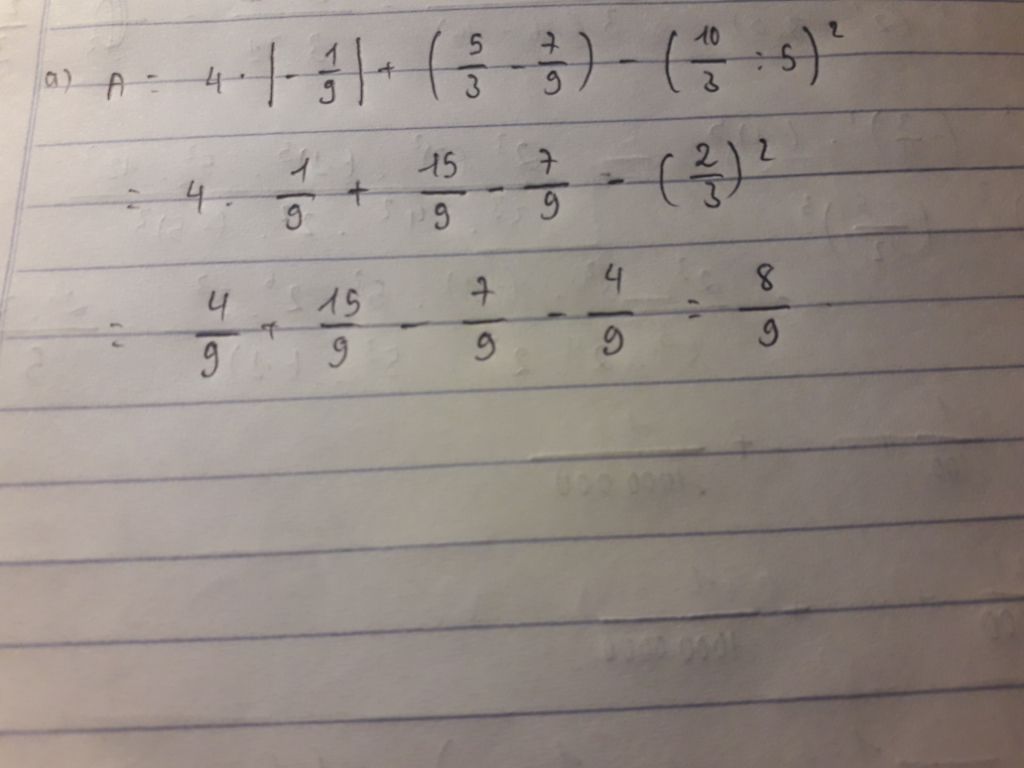 a) A = 4 · |- 1/9| + (5/3 - 7/9) - (10/3 : 5)²
= 4 · 1/9 + 15/9 - 7/9 - (2/3)²
= 4/9 + 15/9 - 7/9 - 4/9 = 8/9